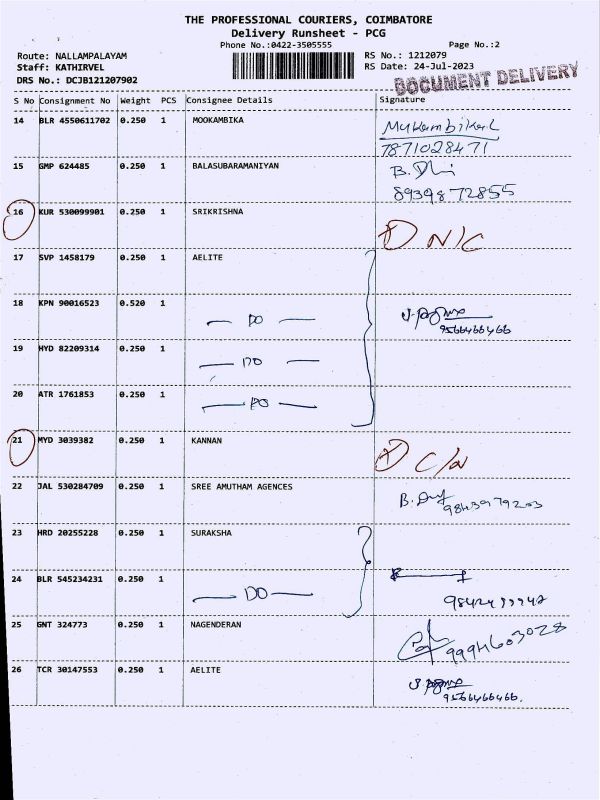 THE PROFESSIONAL COURIERS, COIMBATORE
Delivery Runsheet - PCG
Phone No.:0422-3505555 Page No.:2
Route: NALLAMPALAYAM RS No.: 1212079
Staff: KATHIRVEL RS Date: 24-Jul-2023
DRS No.: DCJB121207902
DOCUMENT DELIVERY
S No Consignment No Weight PCS Consignee Details Signature
14 BLR 4550611702 0.250 1 MOOKAMBIKA
7871028471
15 GMP 624485 0.250 1 BALASUBARAMANIYAN
8939872855
16 KUR 530099901 0.250 1 SRIKRISHNA N/C
17 SVP 1458179 0.250 1 AELITE
18 KPN 90016523 0.520 1 — DO —
9566466466
19 HYD 82209314 0.250 1 — DO —
20 ATR 1761853 0.250 1 — DO —
21 MYD 3039382 0.250 1 KANNAN
22 JAL 530284709 0.250 1 SREE AMUTHAM AGENCES
9843979203
23 HRD 20255228 0.250 1 SURAKSHA
24 BLR 545234231 0.250 1 — DO —
25 GNT 324773 0.250 1 NAGENDERAN
9994603028
26 TCR 30147553 0.250 1 AELITE
9566466466.